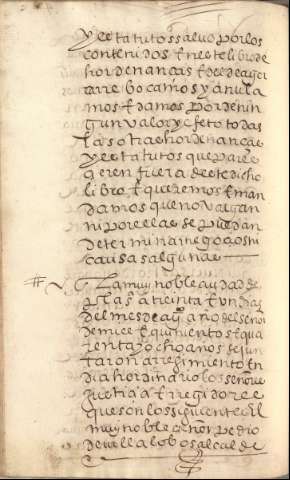 y estatutos salvo por los
contenidos en este libro de
hordenanças e desde agora
rrebocamos y anula
mos e damos por de nin
gun valor y efeto todas
las otras hordenanças
y estatutos que pares
qeren fuera deste dicho
libro e queremos e man
damos que no valgan
ni por ellas se puedan
determinar negoçios ni
causas algunas
la muy noble çiudad de
a treinta e un dias
del mes de año del señor
de mill e quinientos e qua
renta y ocho años se jun
taron a rregimiento en
dia hordinario los señores
justiçia e rregidores
que son los siguientes el
muy noble señor pedro
de villalobos alcalde